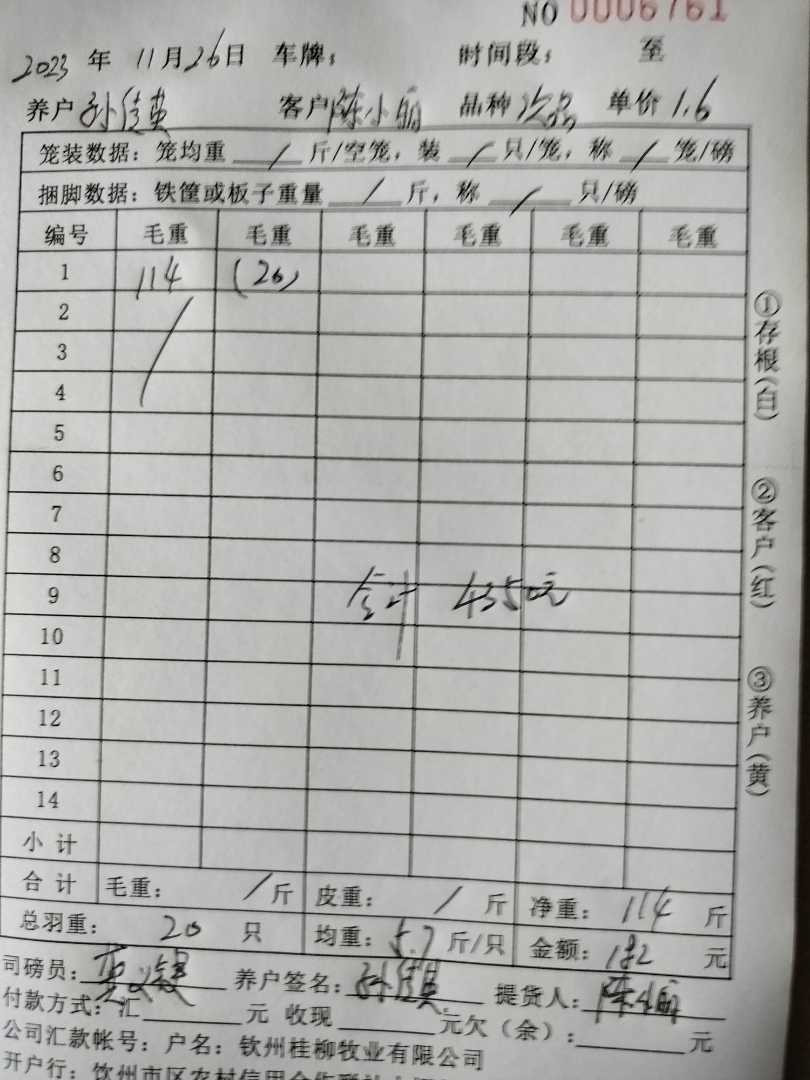 NO 0006761
2023 年 11月26日 车牌: 时间段: 至
养户 孙佳英 客户 陈小丽 品种 次品 单价 1.6
笼装数据: 笼均重 / 斤/空笼, 装 / 只/笼, 称 / 笼/磅
捆脚数据: 铁筐或板子重量 / 斤, 称 / 只/磅
编号 毛重 毛重 毛重 毛重 毛重 毛重
1 114 (20)
2
3
4
5
6
7
8
9 合计 435元
10
11
12
13
14
小计
合计 毛重: / 斤 皮重: / 斤 净重: 114 斤
总羽重: 20 只 均重: 5.7 斤/只 金额: 182 元
司磅员: 养户签名: 孙佳英 提货人: 陈小丽
付款方式: 汇 元 收现 元欠(余): 元
公司汇款帐号: 户名: 钦州桂柳牧业有限公司
开户行: 钦州市区农村信用合作联社
①存根(白)
②客户(红)
③养户(黄)